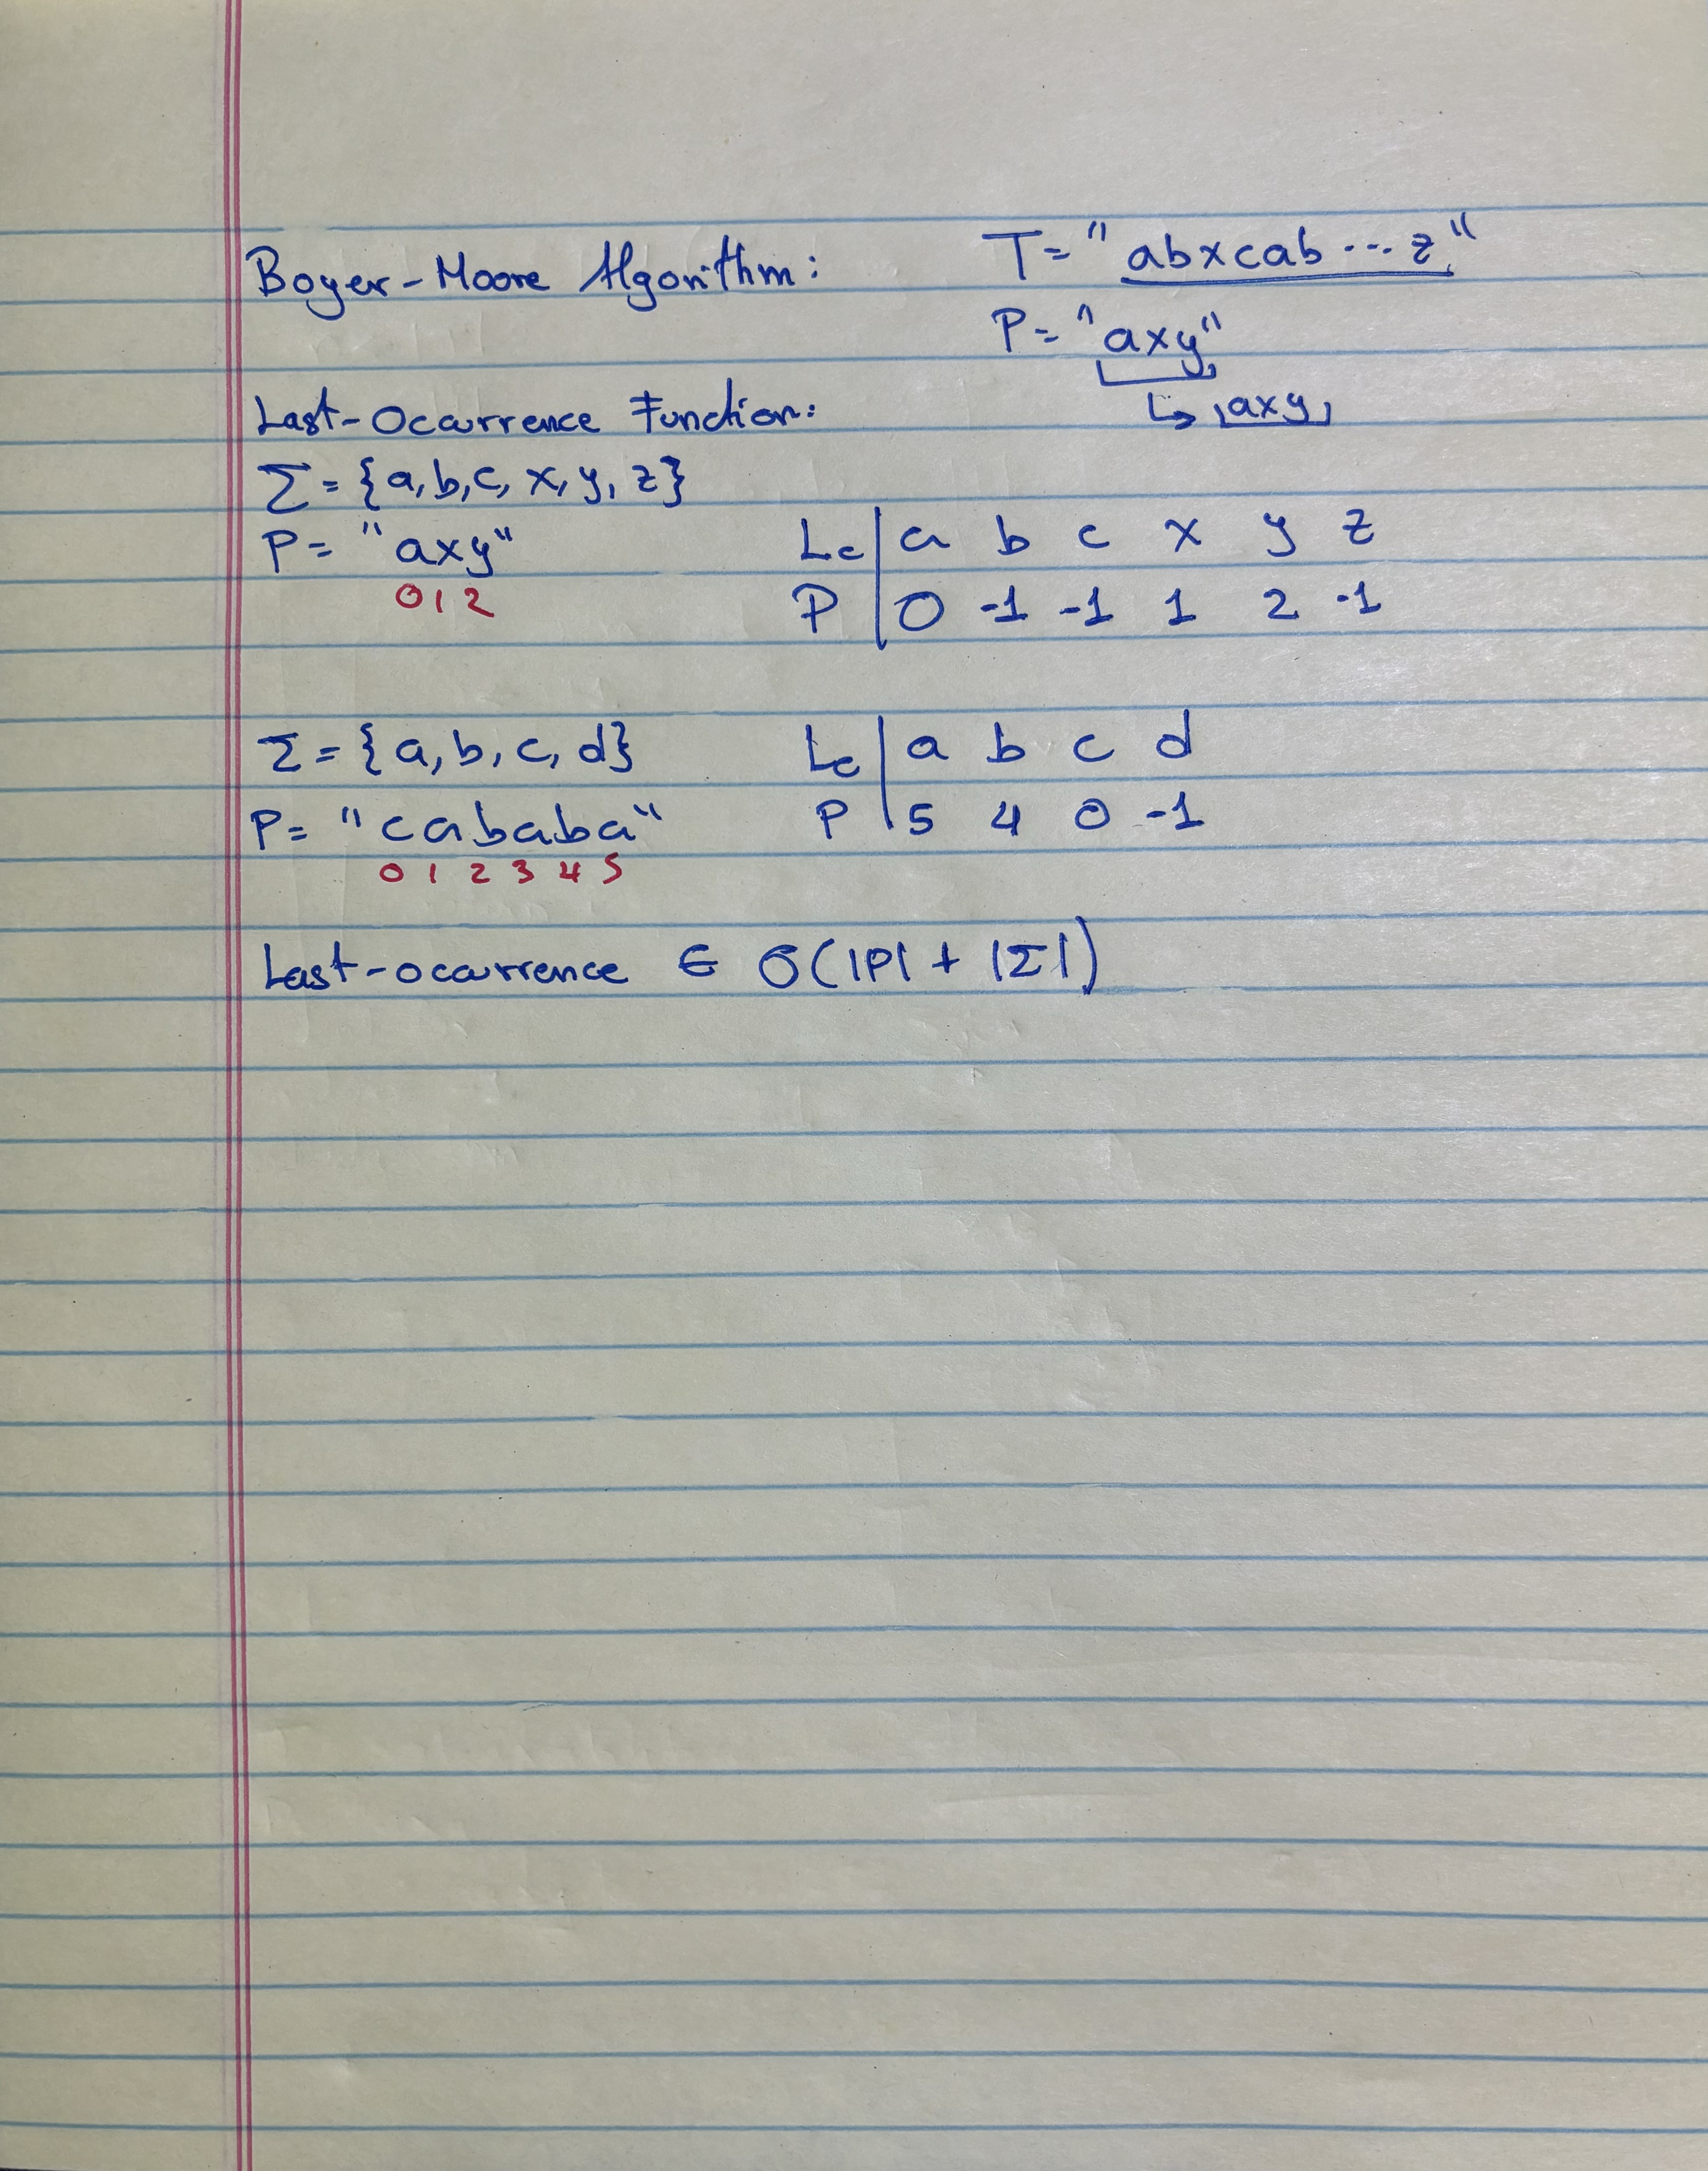 Boyer-Moore Algorithm:
T= "abxcab...z"
P= "axy"
↳ axy
Last-Ocurrence Function:
Σ = {a, b, c, x, y, z}
P= "axy"
0 1 2
Lc | a b c x y z
P | 0 -1 -1 1 2 -1
Σ = {a, b, c, d}
P= "cababa"
0 1 2 3 4 5
Lc | a b c d
P | 5 4 0 -1
Last-ocurrence ∈ O(|P| + |Σ|)